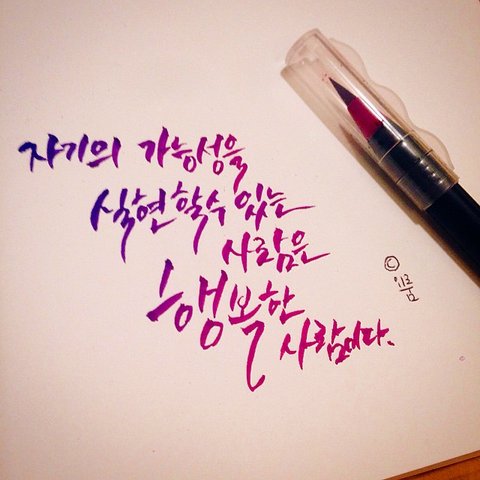 자기의 가능성을
실현할수 있는
사람은
행복한
사람이다.
©
이룸